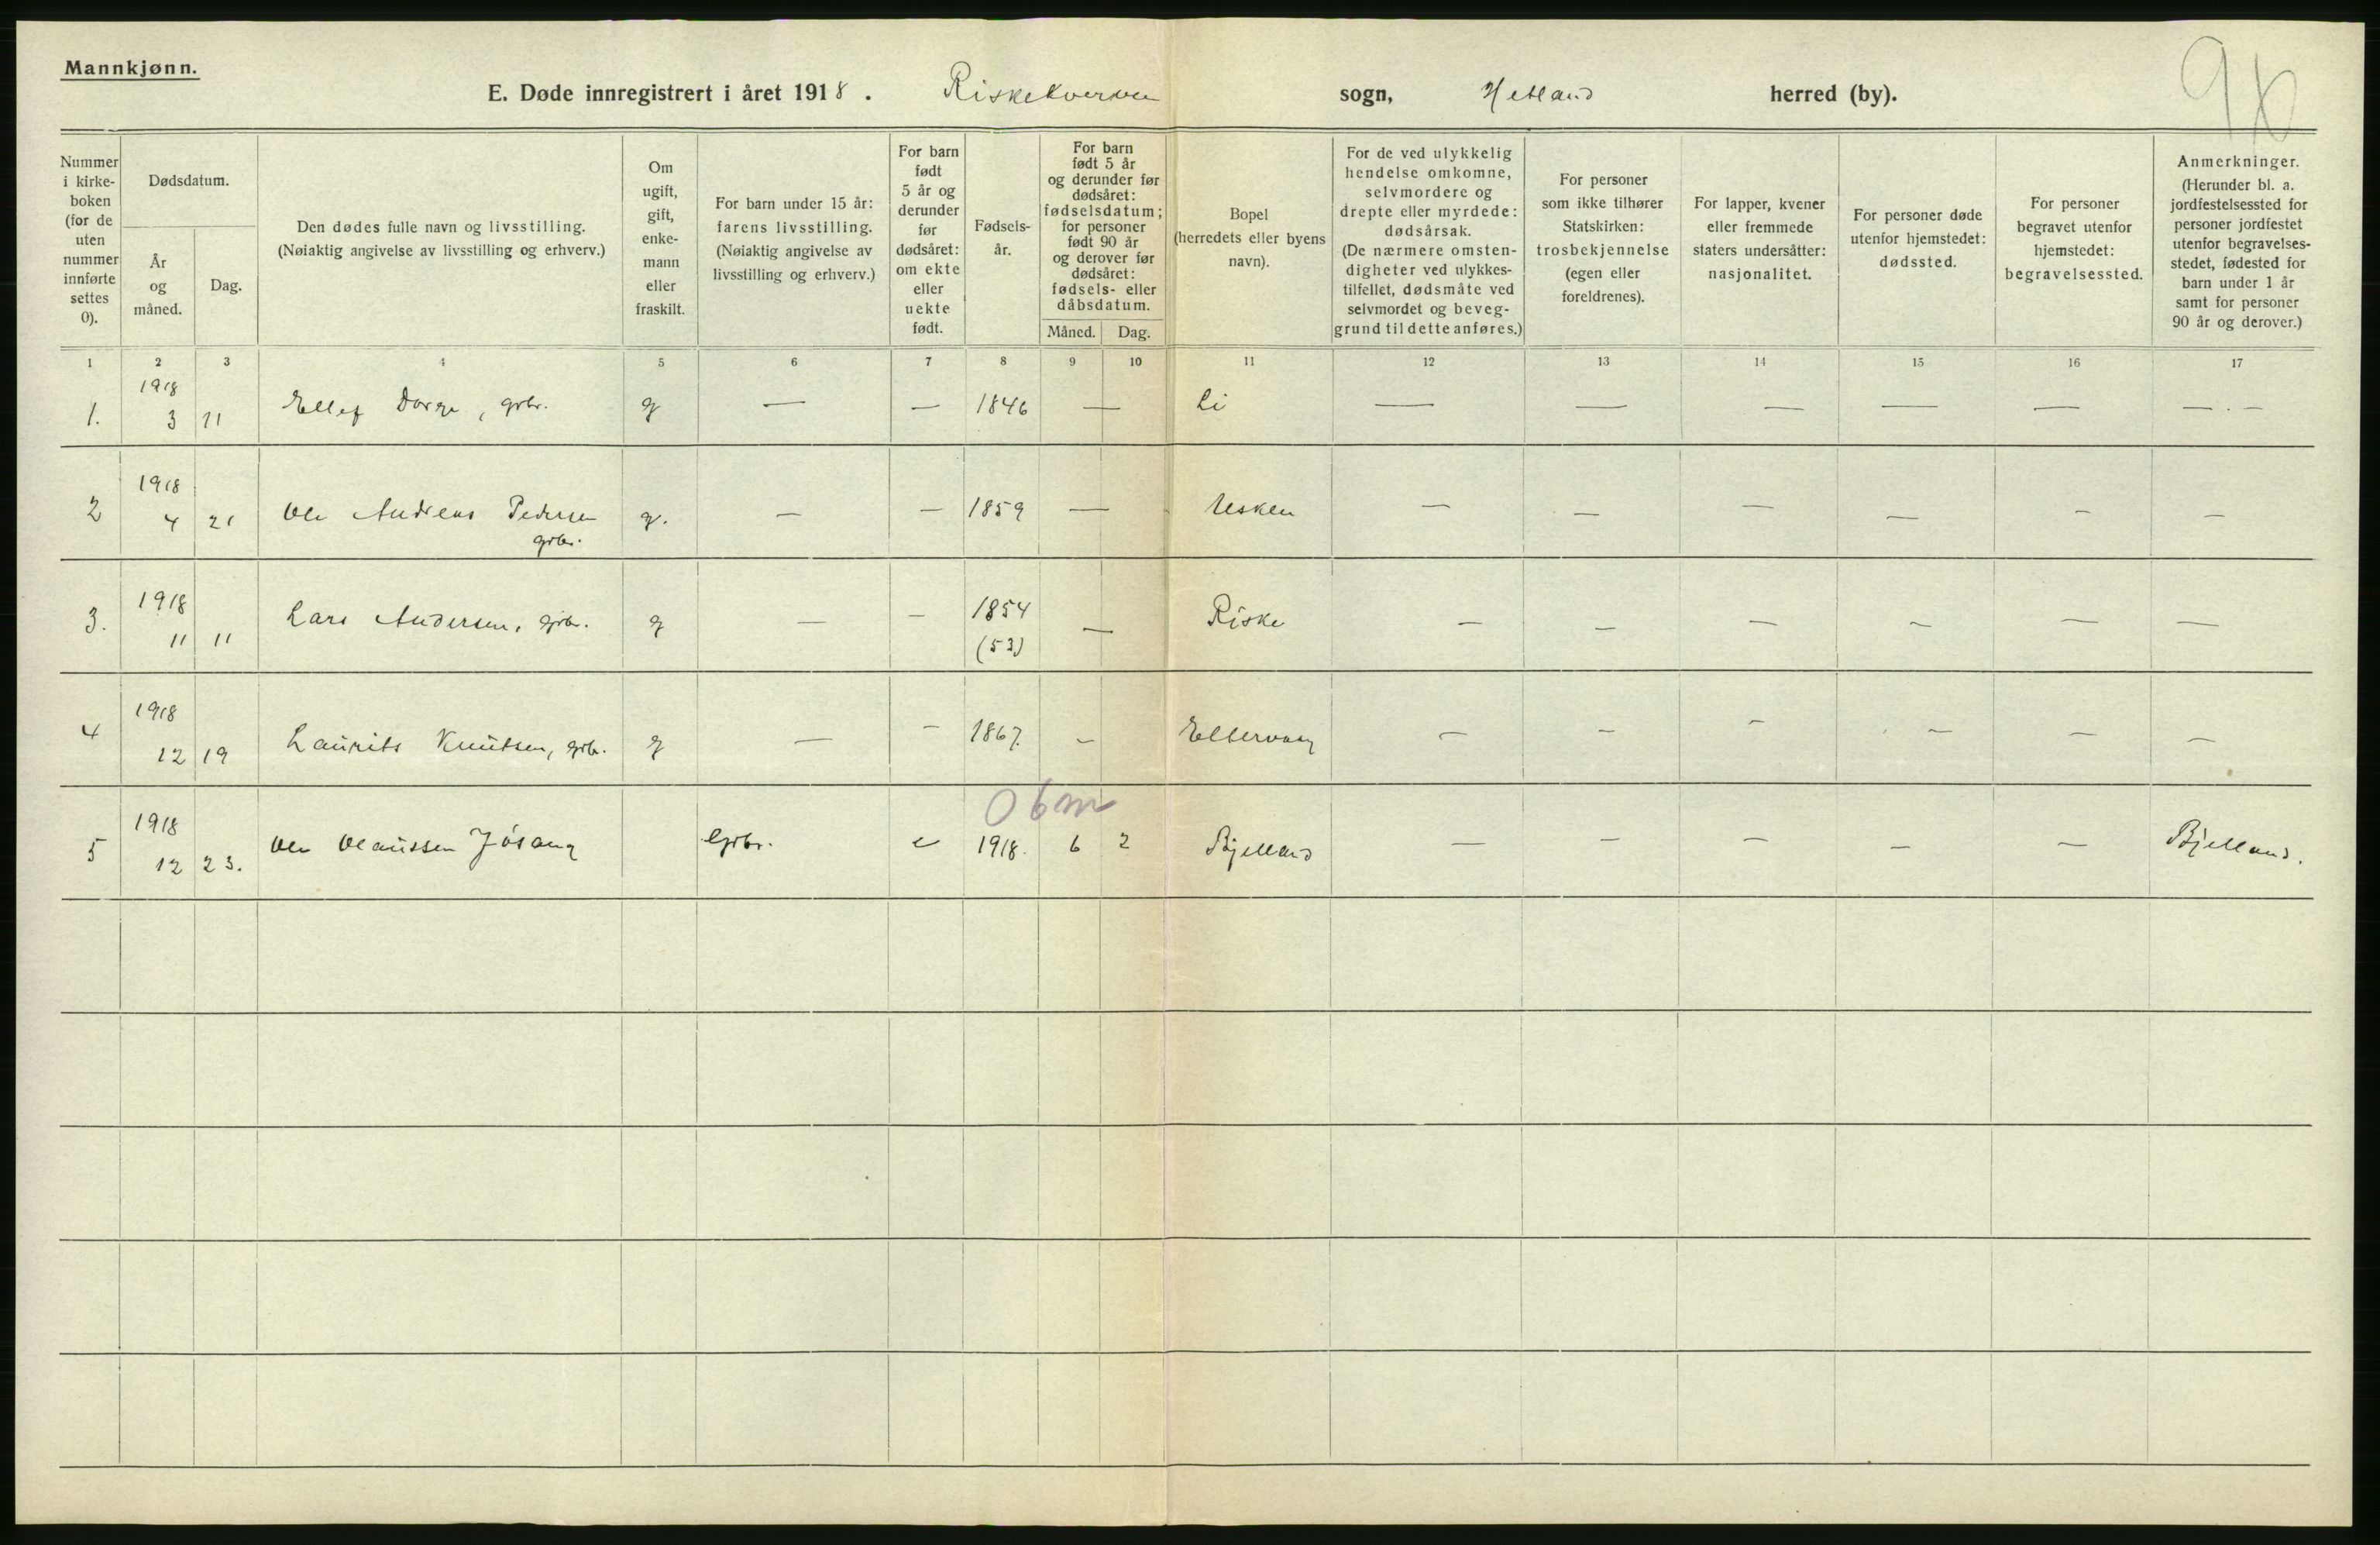 Mannkjønn.
E. Døde innregistrert i året 1918. Riskekverven sogn, Hetland herred (by).
Nummer i kirke- boken (for de uten nummer innførte settes 0).
Dødsdatum.
År og måned.
Dag.
Den dødes fulle navn og livsstilling.
(Nøiaktig angivelse av livsstilling og erhverv.)
Om ugift, gift, enke- mann eller fraskilt.
For barn under 15 år: farens livsstilling.
(Nøiaktig angivelse av livsstilling og erhverv.)
For barn født 5 år og derunder før dødsåret: om ekte eller uekte født.
Fødsels- år.
For barn født 5 år og derunder før dødsåret: fødselsdatum; for personer født 90 år og derover før dødsåret: fødsels- eller dåbsdatum.
Måned. Dag.
Bopel (herredets eller byens navn).
For de ved ulykkelig hendelse omkomne, selvmordere og drepte eller myrdede: dødsårsak.
(De nærmere omsten- digheter ved ulykkes- tilfellet, dødsmåte ved selvmordet og beveg- grund til dette anføres.)
For personer som ikke tilhører Statskirken: trosbekjennelse (egen eller foreldrenes).
For lapper, kvener eller fremmede staters undersåtter: nasjonalitet.
For personer døde utenfor hjemstedet: dødssted.
For personer begravet utenfor hjemstedet: begravelsessted.
Anmerkninger.
(Herunder bl. a. jordfestelsessted for personer jordfestet utenfor begravelses- stedet, fødested for barn under 1 år samt for personer 90 år og derover.)
1 2 3 4 5 6 7 8 9 10 11 12 13 14 15 16 17
1918
1. 3 11 Ellef Dorge, grbr. g — — 1846 — Li — — — — — — . —
1918
2 4 21 Ole Andreas Pedersen g. — — 1859 — Usken — — — — — —
grbr.
1918
3. 11 11 Lars Andersen, grbr. g — — 1854 — Riske — — — — — —
(53)
1918
4 12 19 Laurits Knutsen, grbr. g — — 1867. — — — — — — —
0 6 m
1918
5 12 23. Ole Olaussen Jösang Grbr. e 1918. 6 2 Bjelland — — — — — Bjelland.